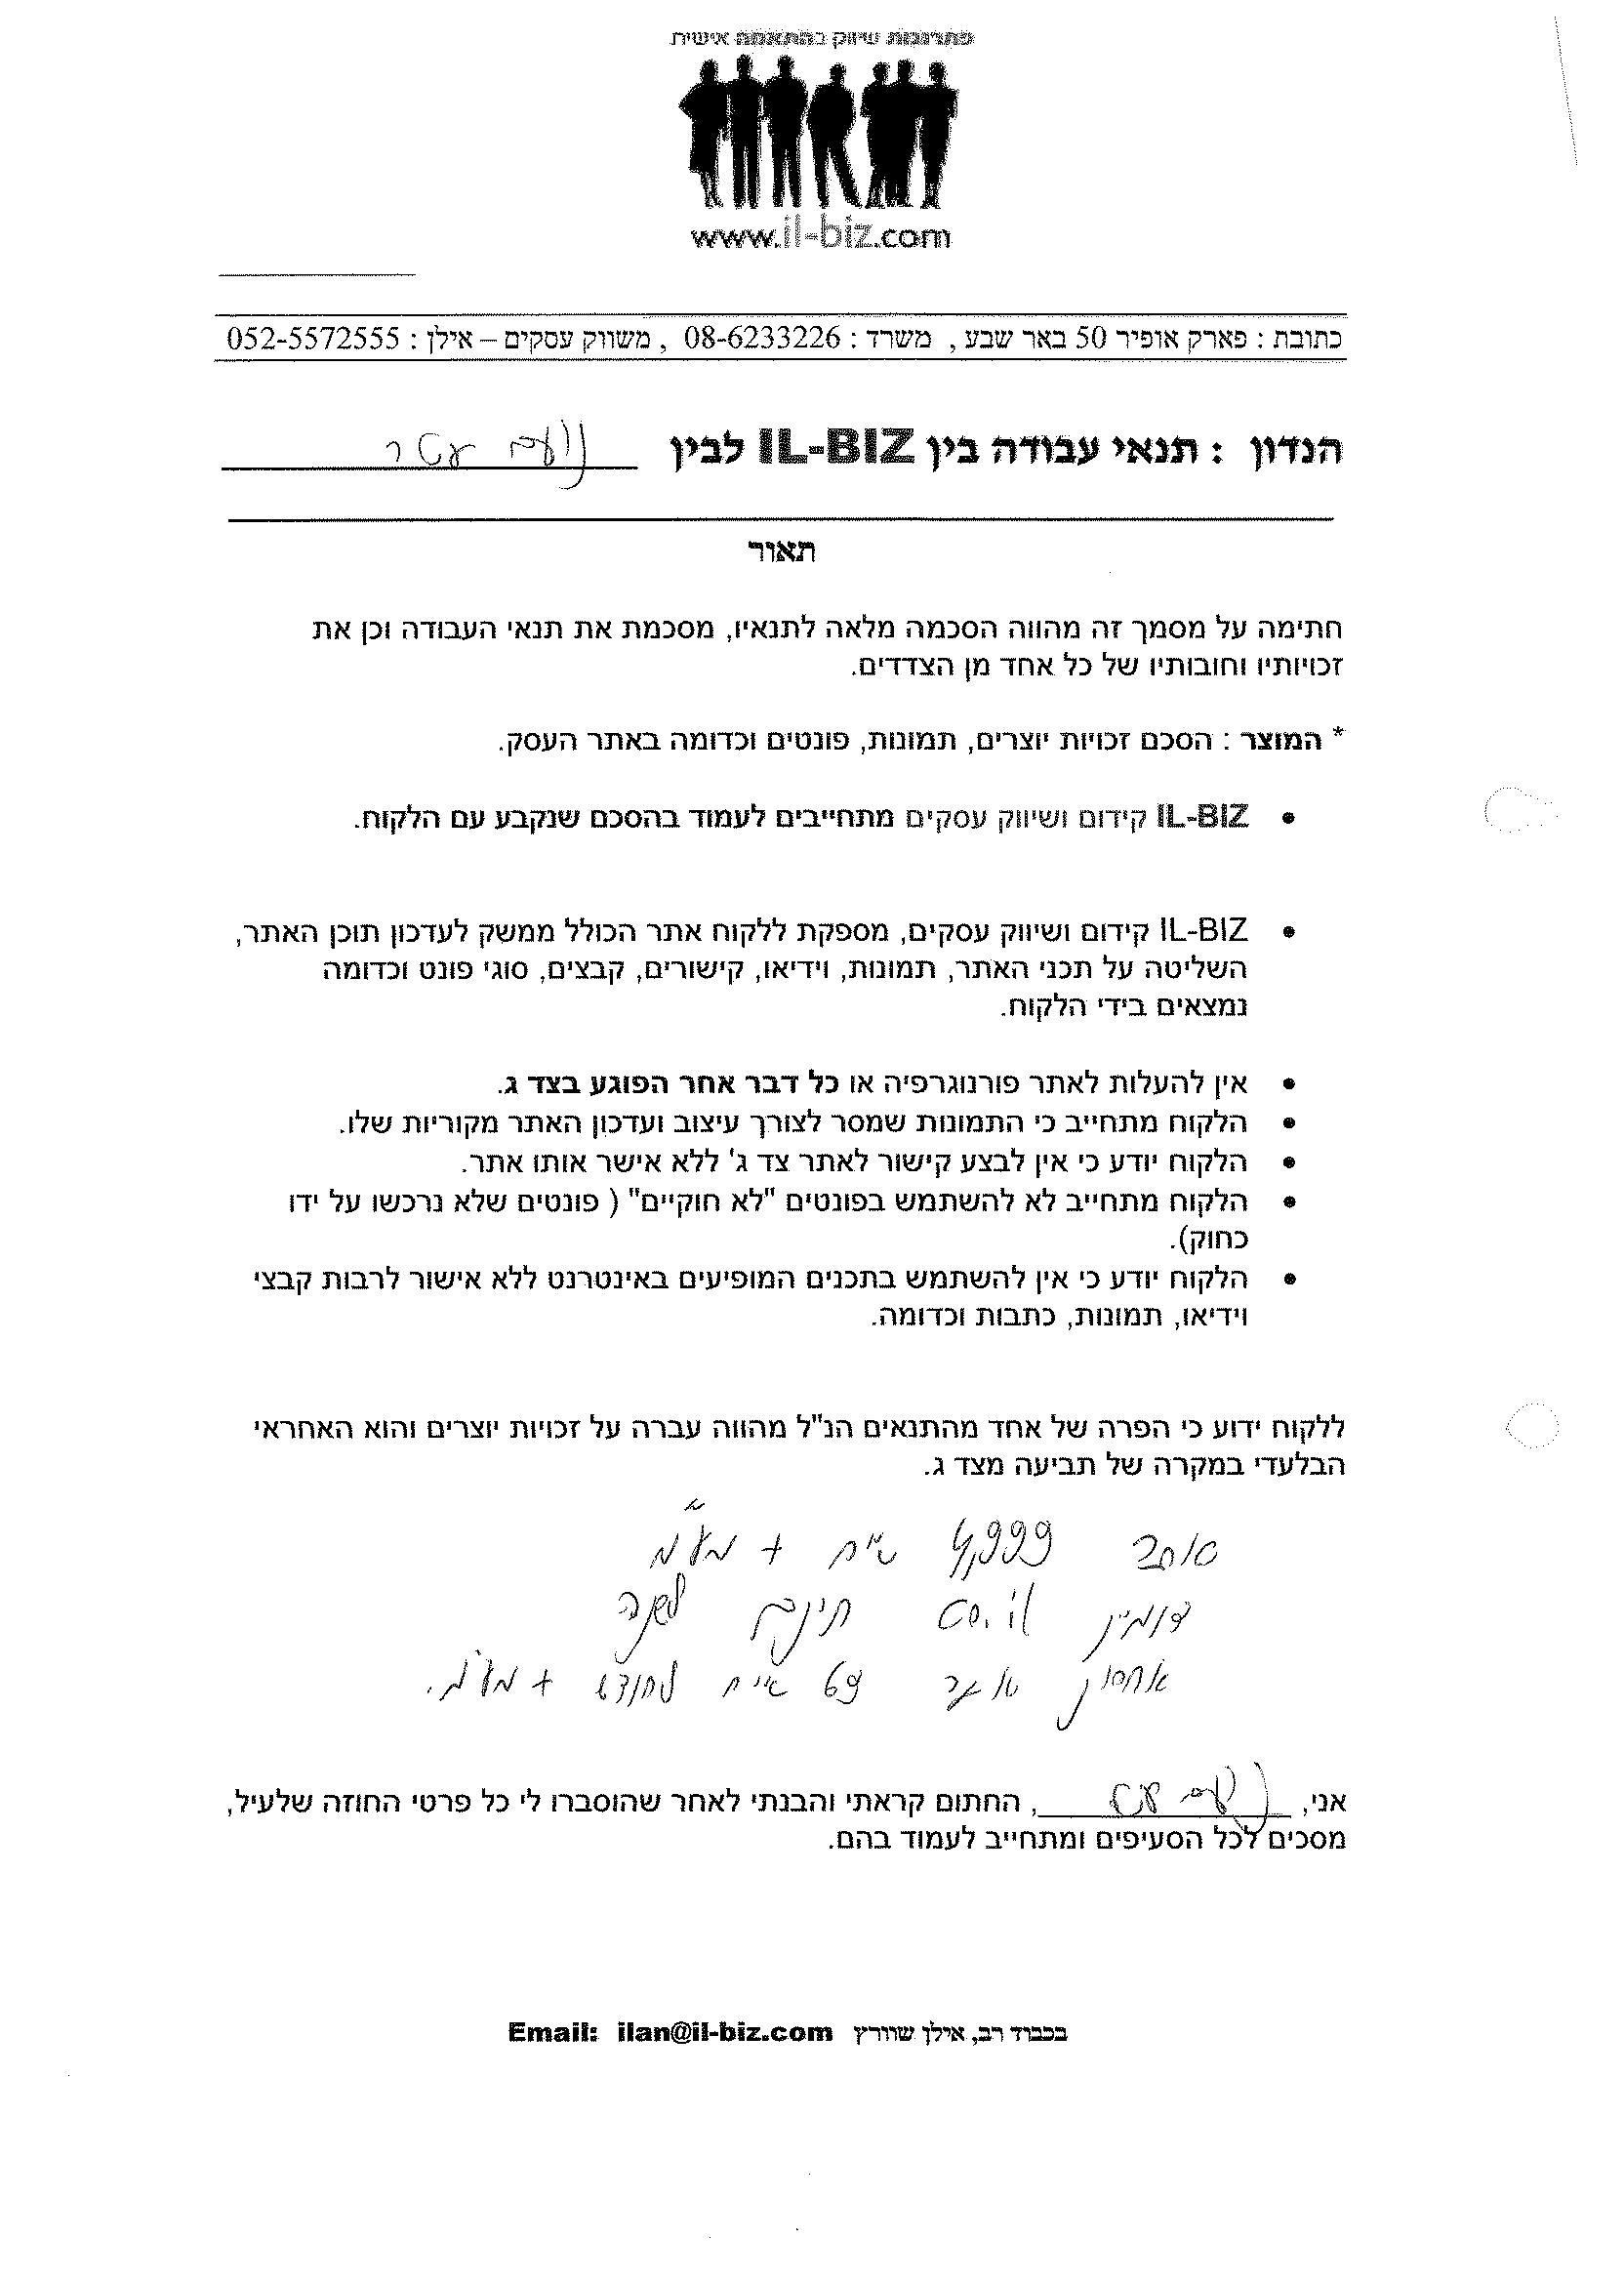 פתרונות שיווק בהתאמה אישית
www.il-biz.com
כתובת : פארק אופיר 50 באר שבע , משרד : 08-6233226 , משווק עסקים – אילן : 052-5572555
הנדון : תנאי עבודה בין IL-BIZ לבין
תאור
חתימה על מסמך זה מהווה הסכמה מלאה לתנאיו, מסכמת את תנאי העבודה וכן את
זכויותיו וחובותיו של כל אחד מן הצדדים.
* המוצר : הסכם זכויות יוצרים, תמונות, פונטים וכדומה באתר העסק.
• IL-BIZ קידום ושיווק עסקים מתחייבים לעמוד בהסכם שנקבע עם הלקוח.
• IL-BIZ קידום ושיווק עסקים, מספקת ללקוח אתר הכולל ממשק לעדכון תוכן האתר,
השליטה על תכני האתר, תמונות, וידיאו, קישורים, קבצים, סוגי פונט וכדומה
נמצאים בידי הלקוח.
• אין להעלות לאתר פורנוגרפיה או כל דבר אחר הפוגע בצד ג.
• הלקוח מתחייב כי התמונות שמסר לצורך עיצוב ועדכון האתר מקוריות שלו.
• הלקוח יודע כי אין לבצע קישור לאתר צד ג' ללא אישר אותו אתר.
• הלקוח מתחייב לא להשתמש בפונטים "לא חוקיים" ( פונטים שלא נרכשו על ידו
כחוק).
• הלקוח יודע כי אין להשתמש בתכנים המופיעים באינטרנט ללא אישור לרבות קבצי
וידיאו, תמונות, כתבות וכדומה.
ללקוח ידוע כי הפרה של אחד מהתנאים הנ"ל מהווה עברה על זכויות יוצרים והוא האחראי
הבלעדי במקרה של תביעה מצד ג.
4,999 ש"ח + מע"מ
דומיין co.il חינם לשנה
אחסון 69 ש"ח לחודש + מע"מ.
אני, , החתום קראתי והבנתי לאחר שהוסברו לי כל פרטי החוזה שלעיל,
מסכים לכל הסעיפים ומתחייב לעמוד בהם.
בכבוד רב, אילן שוורץ Email: ilan@il-biz.com